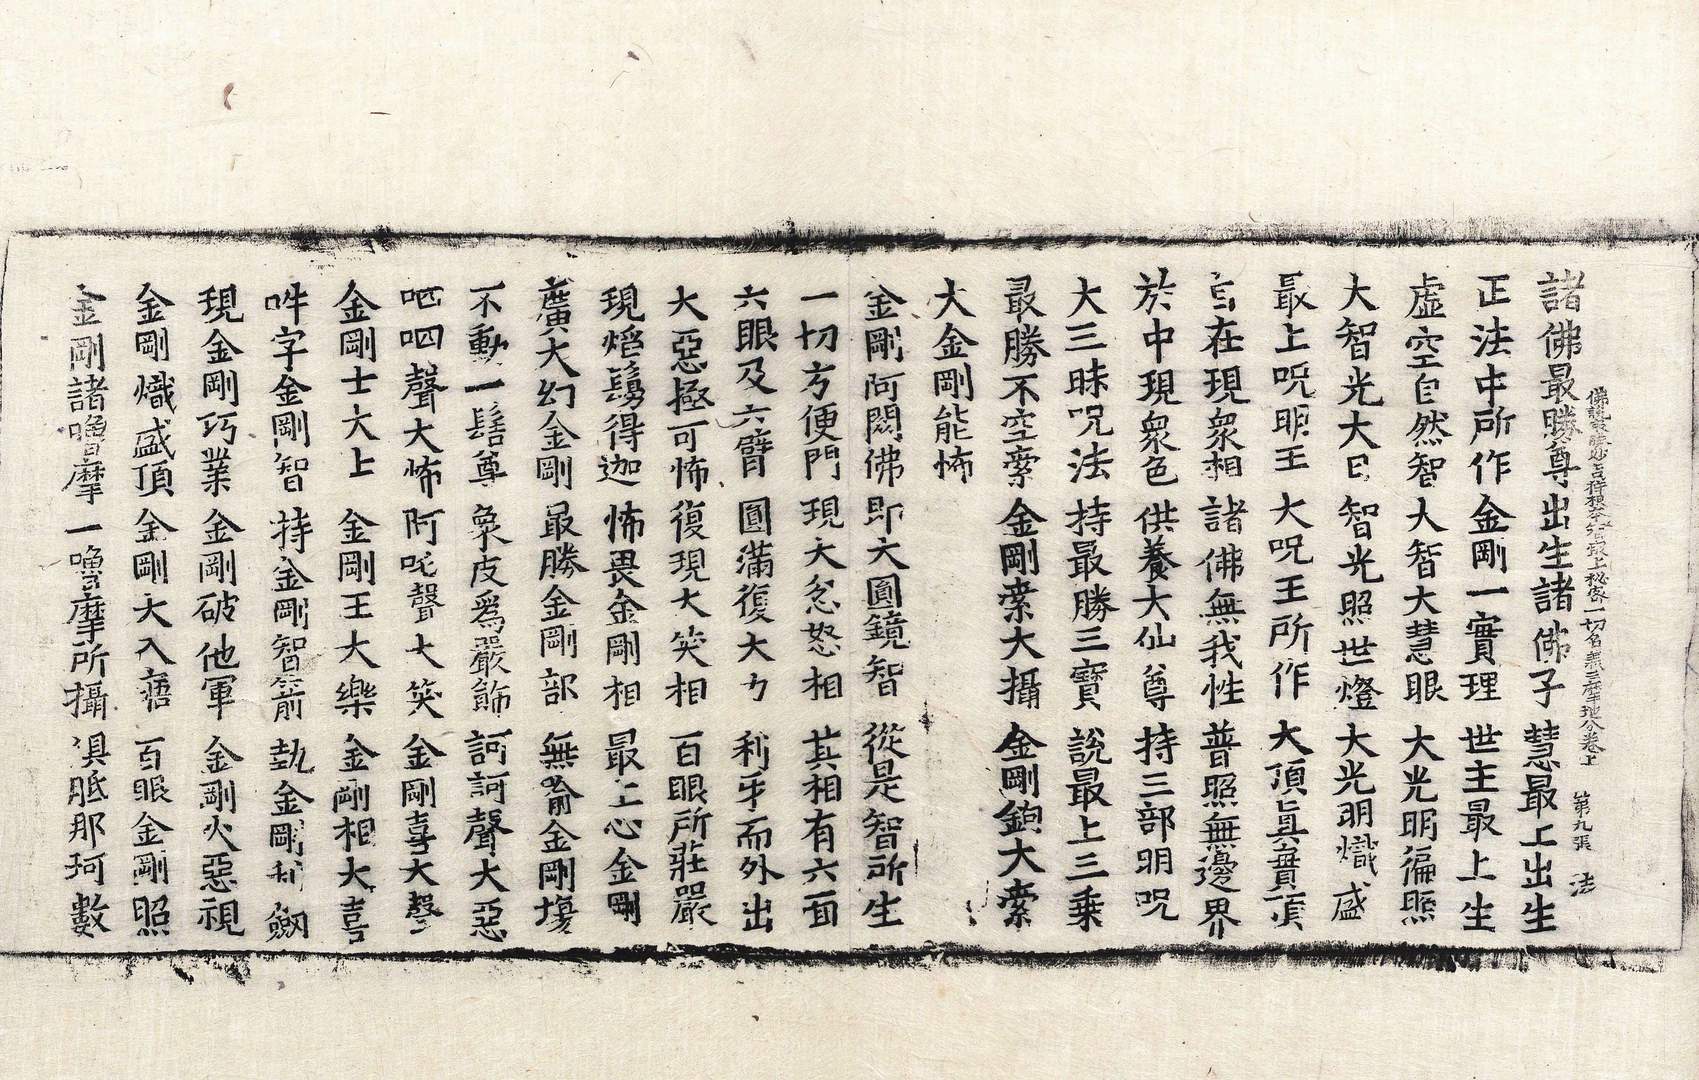 佛說最勝妙吉祥根本智最上秘密一切名義三摩地分卷上 第九張 法
諸佛最勝尊出生諸佛子慧最上出生
正法中所作金剛一實理世主最上生
虛空自然智大智大慧眼大光明徧照
大智光大日智光照世燈大光明熾盛
最上呪明王大呪王所作大頂眞實頂
自在現衆相諸佛無我性普照無邊界
於中現衆色供養大仙尊持三部明呪
大三昧呪法持最勝三寶說最上三乗
最勝不空索金剛索大攝金剛鉤大索
大金剛能怖
金剛阿閦佛即大圓鏡智從是智所生
一切方便門現大忿怒相其相有六面
六眼及六臂圓滿復大力利牙而外出
大惡極可怖復現大笑相百眼所莊嚴
現熖鬘得迦怖畏金剛相最上心金剛
廣大幻金剛最勝金剛部無喻金剛塲
不動一髻尊象皮爲嚴飾訶訶聲大惡
呬呬聲大怖阿吒聲大笑金剛喜大聲
金剛士大上金剛王大樂金剛相大喜
吽字金剛智持金剛智箭執金剛利劒
現金剛巧業金剛破他軍金剛火惡視
金剛熾盛頂金剛大入寤百眼金剛照
金剛諸嚕摩一嚕摩所攝俱胝那珂數